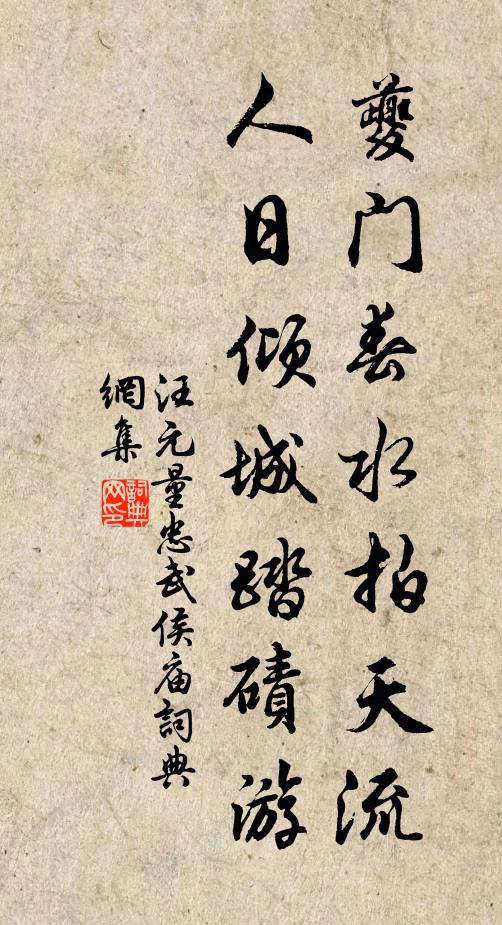 夔门春水拍天流
人日倾城踏磧游
汪元量忠武侯庙詞典
網集
詞典
网印